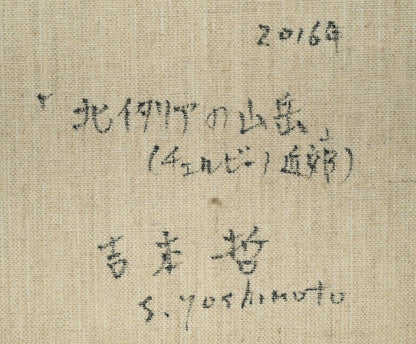 2016年
「北イタリアの山岳」
(チェルビーノ近郊)
吉本 哲
S. Yoshimoto